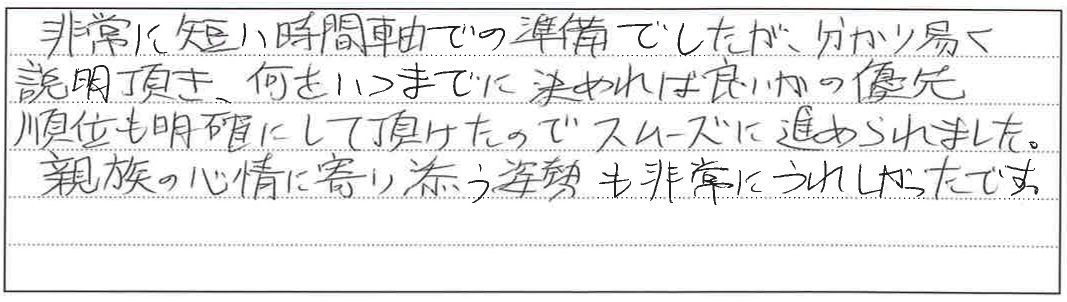 非常に短い時間軸での準備でしたが、分かり易く
説明頂き、何をいつまでに決めれば良いかの優先
順位も明確にして頂けたのでスムーズに進められました。
親族の心情に寄り添う姿勢も非常にうれしかったです。